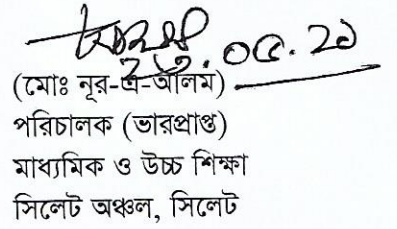 ২৩.০৫.২১
(মোঃ নূর-এ-আলম)
পরিচালক (ভারপ্রাপ্ত)
মাধ্যমিক ও উচ্চ শিক্ষা
সিলেট অঞ্চল, সিলেট